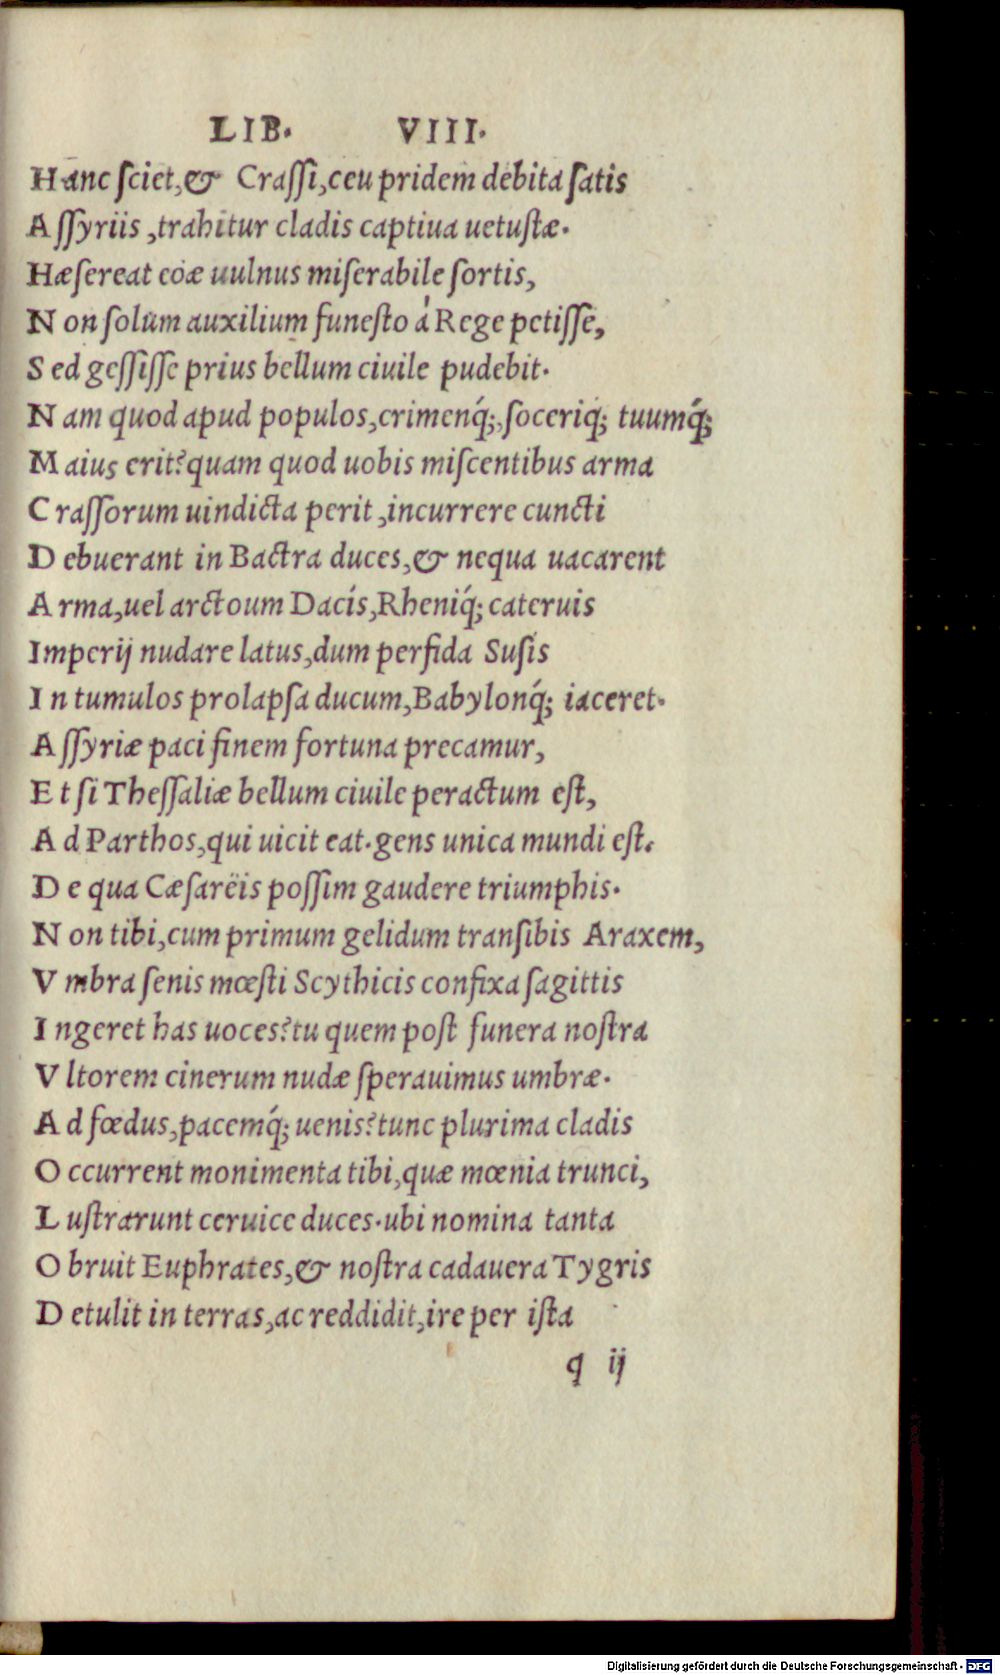 LIB. VIII.
Hanc sciet,& Crassi,ceu pridem debita satis
Assyriis ,trahitur cladis captiua uetustæ.
Hæsereat eoæ uulnus miserabile sortis,
Non solùm auxilium funesto á Rege petisse,
Sed gessisse prius bellum ciuile pudebit.
Nam quod apud populos,crimenq́;,soceriq́; tuumq́;
Maius erit?quam quod uobis miscentibus arma
Crassorum uindicta perit ,incurrere cuncti
Debuerant in Bactra duces,& nequa uacarent
Arma,uel arctoum Dacis,Rheniq́; cateruis
Imperij nudare latus,dum perfida Susis
In tumulos prolapsa ducum,Babylonq́; iaceret.
Assyriæ paci finem fortuna precamur,
Et si Thessaliæ bellum ciuile peractum est,
Ad Parthos,qui uicit eat.gens unica mundi est.
De qua Cæsarëis possim gaudere triumphis.
Non tibi,cum primum gelidum transibis Araxem,
Vmbra senis mœsti Scythicis confixa sagittis
Ingeret has uoces?tu quem post funera nostra
Vltorem cinerum nudæ sperauimus umbræ.
Ad fœdus,pacemq́; uenis?tunc plurima cladis
Occurrent monimenta tibi,quæ mœnia trunci,
Lustrarunt ceruice duces.ubi nomina tanta
Obruit Euphrates,& nostra cadauera Tygris
Detulit in terras,ac reddidit,ire per ista
q ij
Digitalisierung gefördert durch die Deutsche Forschungsgemeinschaft - DFG